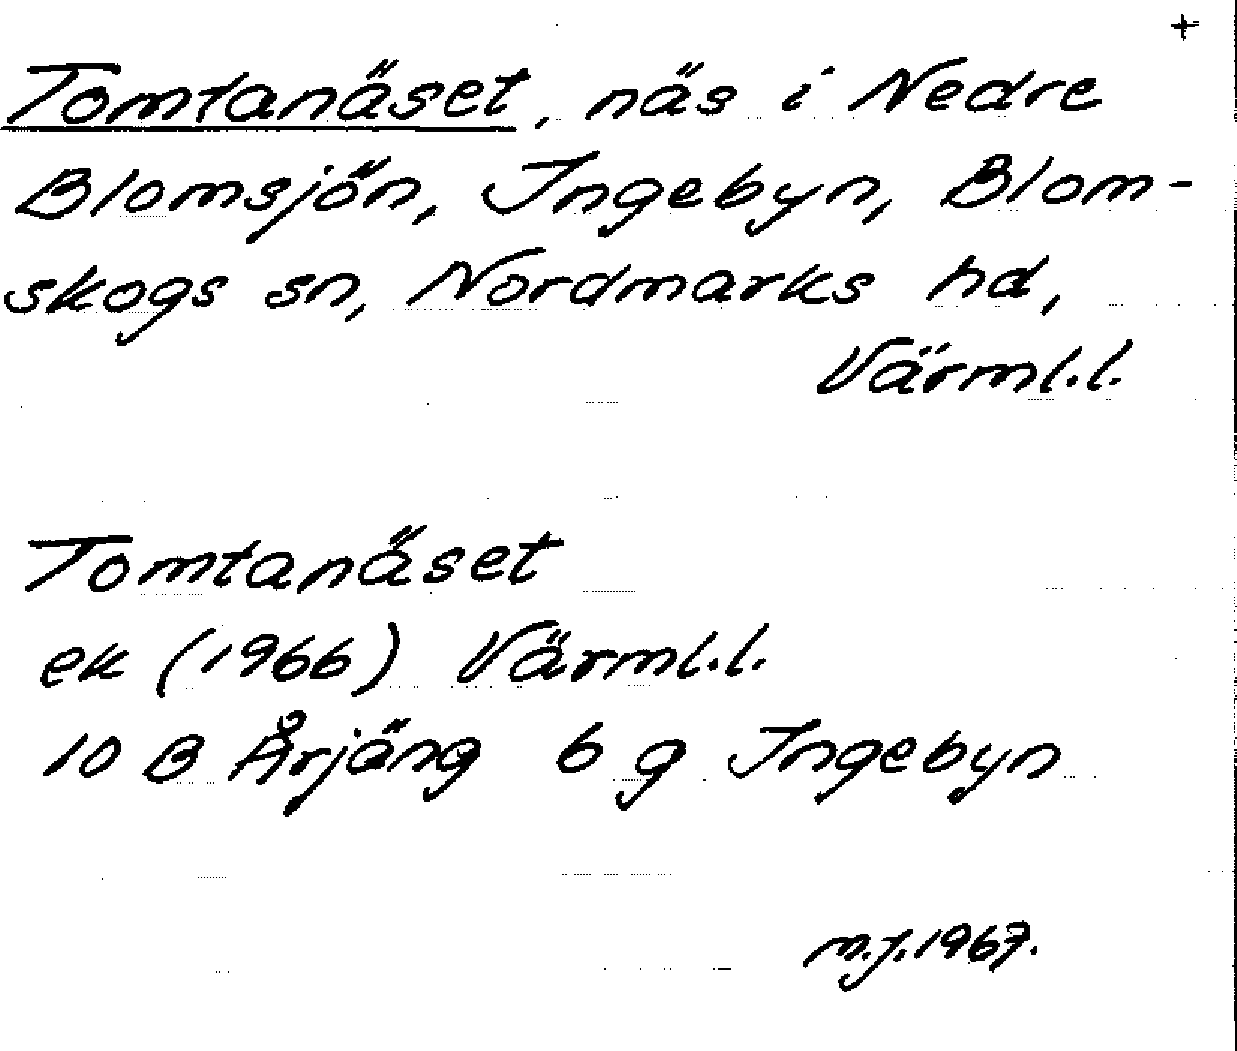 +
Tomtanäset, näs i Nedre
Blomsjön, Ingebyn, Blom-
skogs sn, Nordmarks hd,
Värml.l.
Tomtanäset
ek (1966) Värml.l.
10 B Årjäng 6 g Ingebyn
m.j.1967.